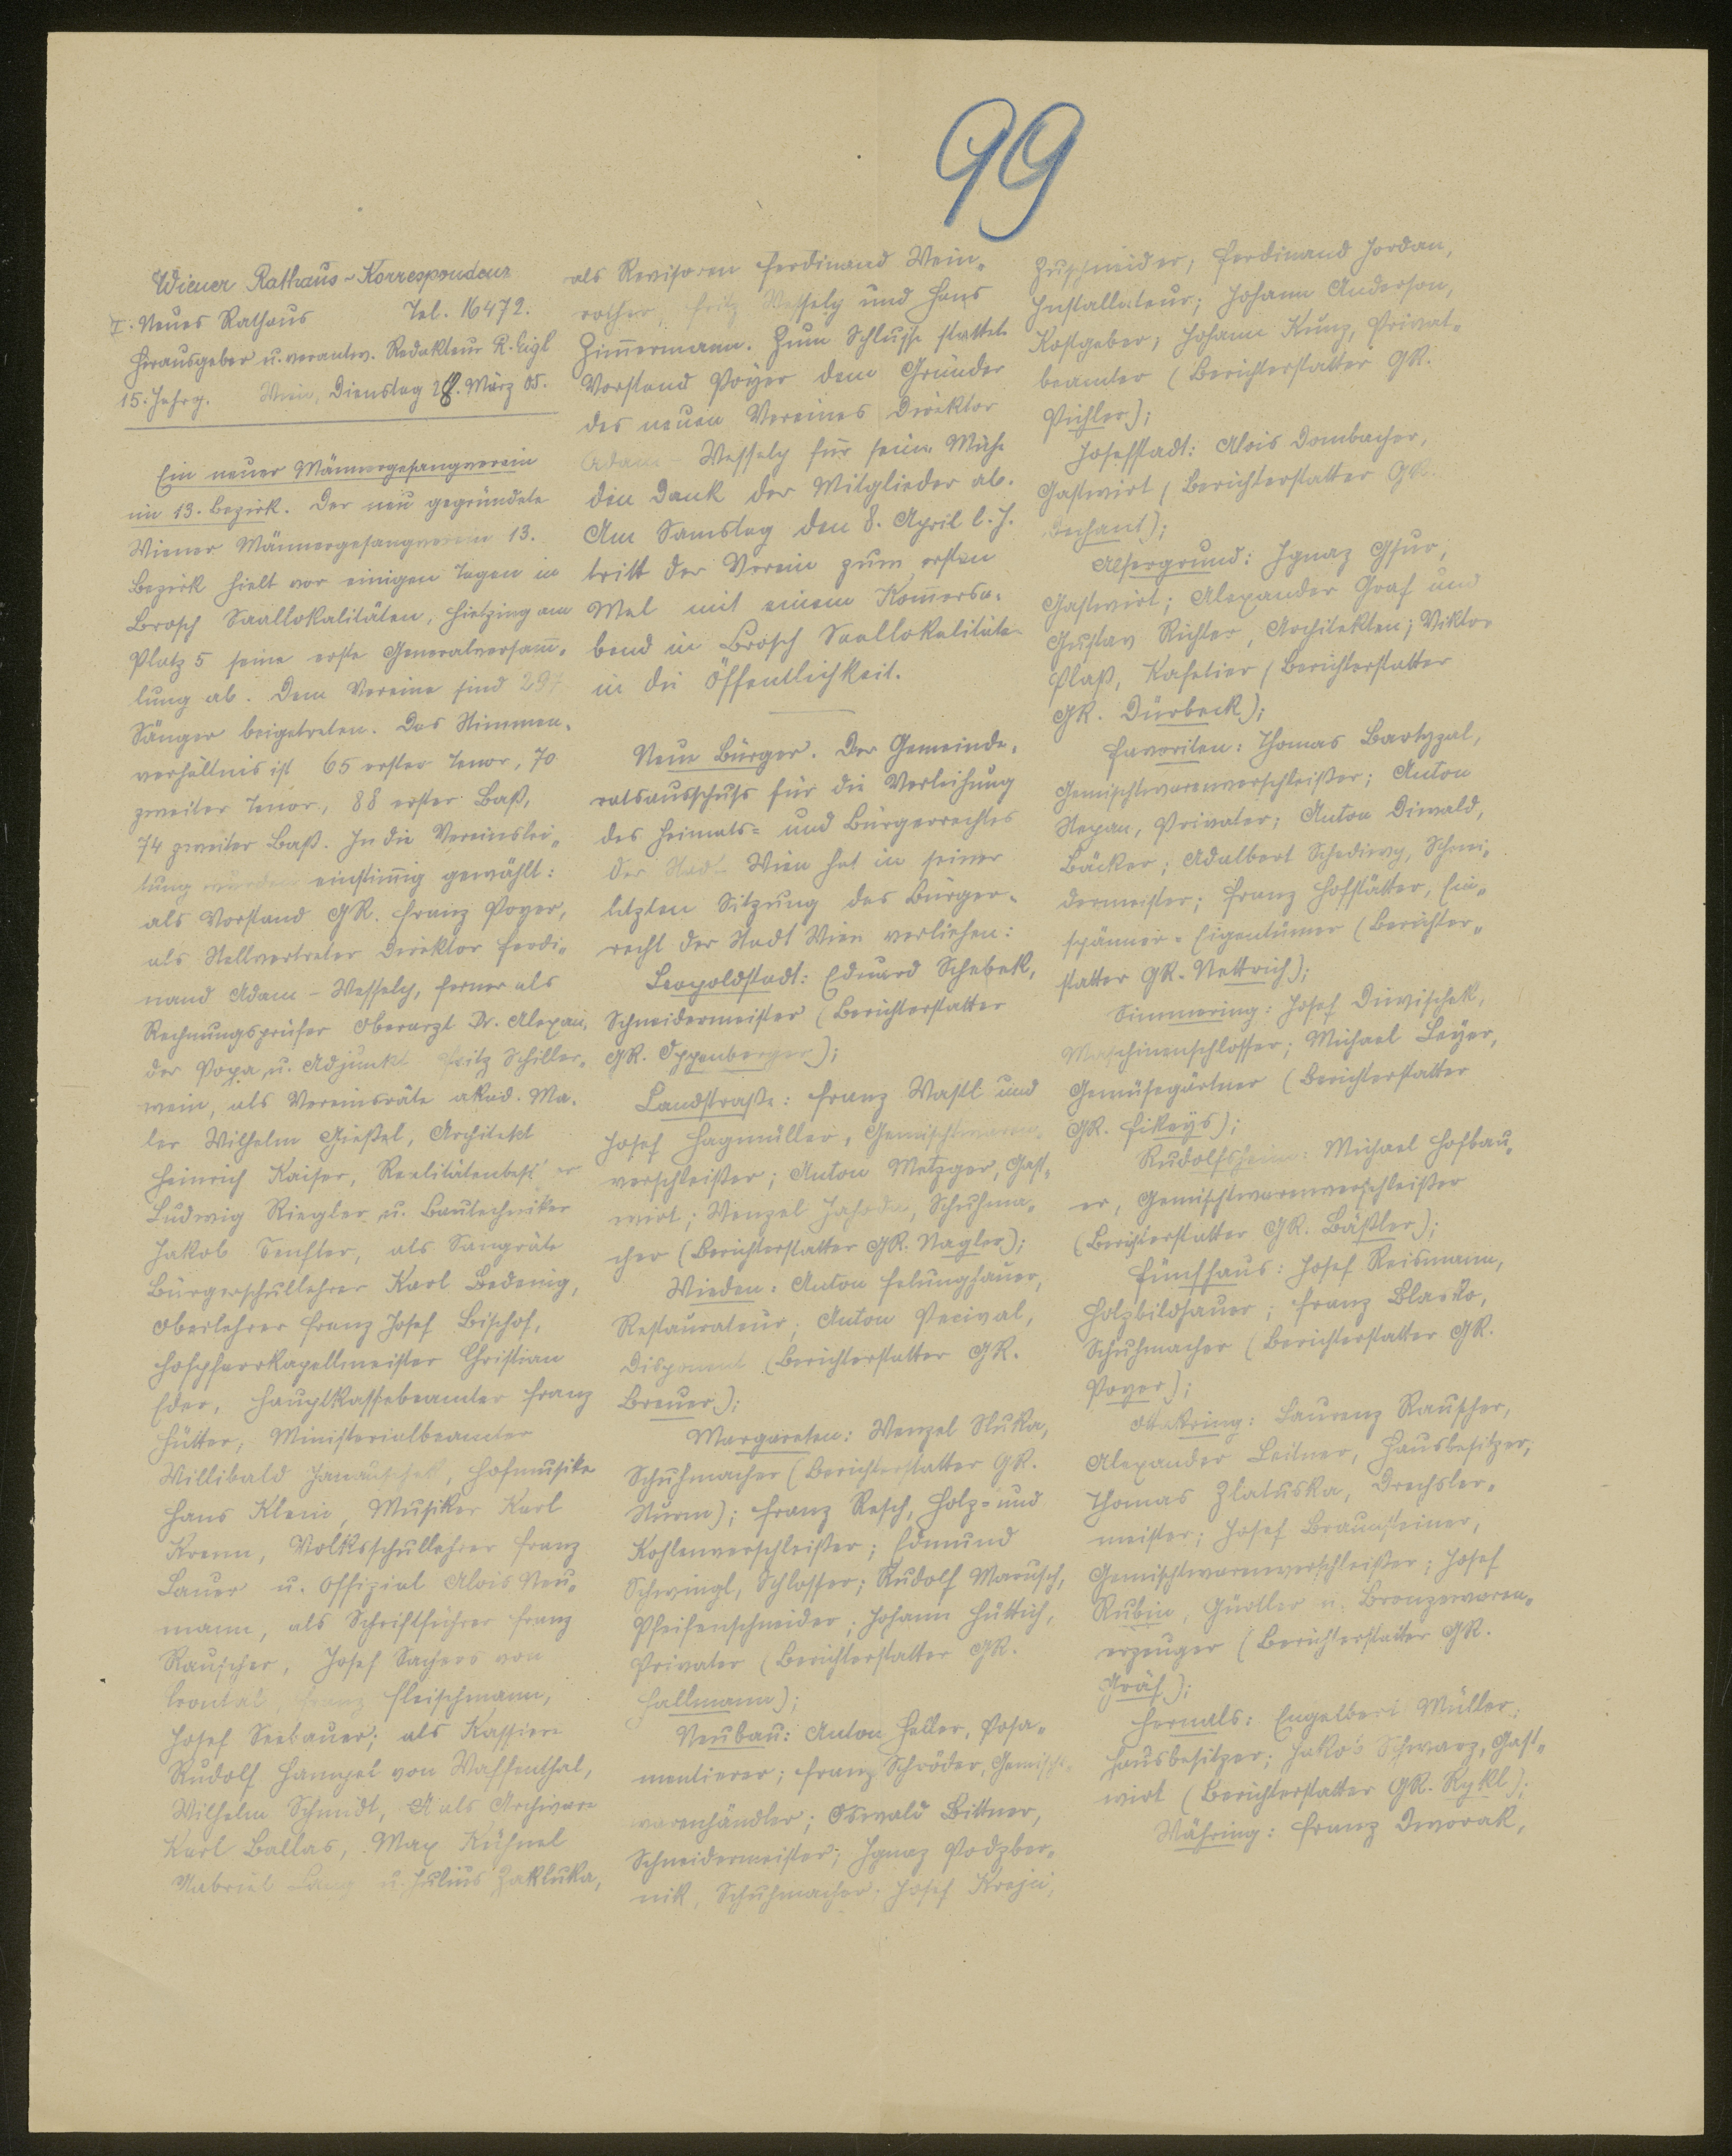 99
Wiener Rathaus-Korrespondenz
I. Neues Rathaus Tel. 16472.
Herausgeber u. verantw. Redakteur R. Eigl
15. Jahrg. Wien, Dienstag 28. März 05.
Ein neuer Männergesangverein
im 13. Bezirk. Der neu gegründete
Wiener Männergesangverein 13.
Bezirk hielt vor einigen Tagen in
Brosch Saallokalitäten, Hietzing am
Platz 5 seine erste Generalversam̄-
lung ab. Dem Vereine sind 297
Sänger beigetreten. Das Stimmen-
verhältnis ist 65 erster Tenor, 70
zweiter Tenor, 88 erster Baß,
74 zweiter Baß. In die Vereinslei-
tung wurden einstim̄ig gewählt:
als Vorstand GR. Franz Poyer,
als Stellvertreter Direktor Ferdi-
nand Adam-Wessely, ferner als
Rechnungsprüfer Oberarzt Dr. Alexan-
der Popa u. Adjunkt Fritz Schiller-
wein, als Vereinsräte akad. Ma-
ler Wilhelm Gießel, Architekt
Heinrich Kaiser, Realitätenbesitzer
Ludwig Riegler u. Bautechniker
Jakob Senfter, als Sangräte
Bürgerschullehrer Karl Bedenig,
Oberlehrer Franz Josef Bischof,
Hofpfarrkapellmeister Christian
Eder, Hauptkassebeamter Franz
Hütter, Ministerialbeamter
Willibald Janauschek, Hofmusiker
Hans Klein, Musiker Karl
Krenn, Volksschullehrer Franz
Lauer u. Offizial Alois Neu-
mann, als Schriftführer Franz
Rauscher, Josef Sachers von
Franz Fleischmann,
Josef Seebauer; als Kassiere
Rudolf Hampel von Waffenthal,
Wilhelm Schmidt, als Archivare
Karl Ballas, Max Kühnel
Gabriel Lang u. Julius Zakluka,
als Revisoren Ferdinand Wein-
rother, Fritz Wessely und Hans
Zim̄ermann. Zum Schlusse stattete
Vorstand Poyer dem Gründer
des neuen Vereines Direktor
Adam-Wessely für seine Mühe
den Dank der Mitglieder ab.
Am Samstag den 8. April l. J.
tritt der Verein zum ersten
Mal mit einem Kom̄ersa-
bend in Brosch Saallokalitäten
in die Öffentlichkeit.
Neue Bürger. Der Gemeinde-
ratsausschuss für die Verleihung
des Heimats- und Bürgerrechtes
der Stadt Wien hat in seiner
letzten Sitzung das Bürger-
recht der Stadt Wien verliehen:
Leopoldstadt: Eduard Schebek,
Schneidermeister (Berichterstatter
GR. Oppenberger);
Landstraße: Franz Wastl und
Josef Hagmüller, Gemischtwaren-
verschleißer; Anton Metzger, Gast-
wirt; Wenzel Jahoda, Schuhma-
cher (Berichterstatter GR. Nagler);
Wieden: Anton Felunghauer,
Restaurateur; Anton Pecival,
Disponent (Berichterstatter GR.
Breuer);
Margareten: Wenzel Sluka,
Schuhmacher (Berichterstatter GR.
Sturm); Franz Resch, Holz- und
Kohlenverschleißer; Edmund
Schwingl, Schlosser; Rudolf Marusch,
Pfeifenschneider; Johann Hüttich,
Privater (Berichterstatter GR.
Hallmann);
Neubau: Anton Heller, Posa-
mentierer; Franz Schröder, Gemischt-
warenhändler; Oswald Bittner,
Schneidermeister; Ignaz Podzber-
nik, Schuhmacher; Josef Krejci,
Zuschneider; Ferdinand Jordan,
Installateur; Johann Anderson,
Kostgeber; Johann Kunz, Privat-
beamter (Berichterstatter GR.
Pichler);
Josefstadt: Alois Dombacher,
Gastwirt (Berichterstatter GR.
Dechant);
Alsergrund: Ignaz Gsur,
Gastwirt; Alexander Graf und
Gustav Richter, Architekten; Viktor
Plaß, Kafetier (Berichterstatter
GR. Dürbeck);
Favoriten: Thomas Bartyzal,
Gemischtwarenverschleißer; Anton
Stepan, Privater; Anton Diwald,
Bäcker; Adalbert Schediwy, Schnei-
dermeister; Franz Hofstätter, Ein-
spänner-Eigentümer (Berichter-
statter GR. Nettrich);
Simmering: Josef Diwischek,
Maschinenschlosser; Michael Leyer,
Gemüsegärtner (Berichterstatter
GR. Fikeys);
Rudolfsheim: Michael Hofbau-
er, Gemischtwarenverschleißer
(Berichterstatter GR. Bäßler);
Fünfhaus: Josef Reismann,
Holzbildhauer; Franz Blasko,
Schuhmacher (Berichterstatter GR.
Poyer);
Ottakring: Laurenz Rauscher,
Alexander Leitner, Hausbesitzer;
Thomas Zlatuska, Drechsler-
meister; Josef Braunsteiner,
Gemischtwarenverschleißer; Josef
Rubin, Gürtler u. Bronzewaren-
erzeuger (Berichterstatter GR.
Gräf);
Hernals: Engelbert Müller,
Hausbesitzer; Jakob Schwarz, Gast-
wirt (Berichterstatter GR. Rykl);
Währing: Franz Dworak,